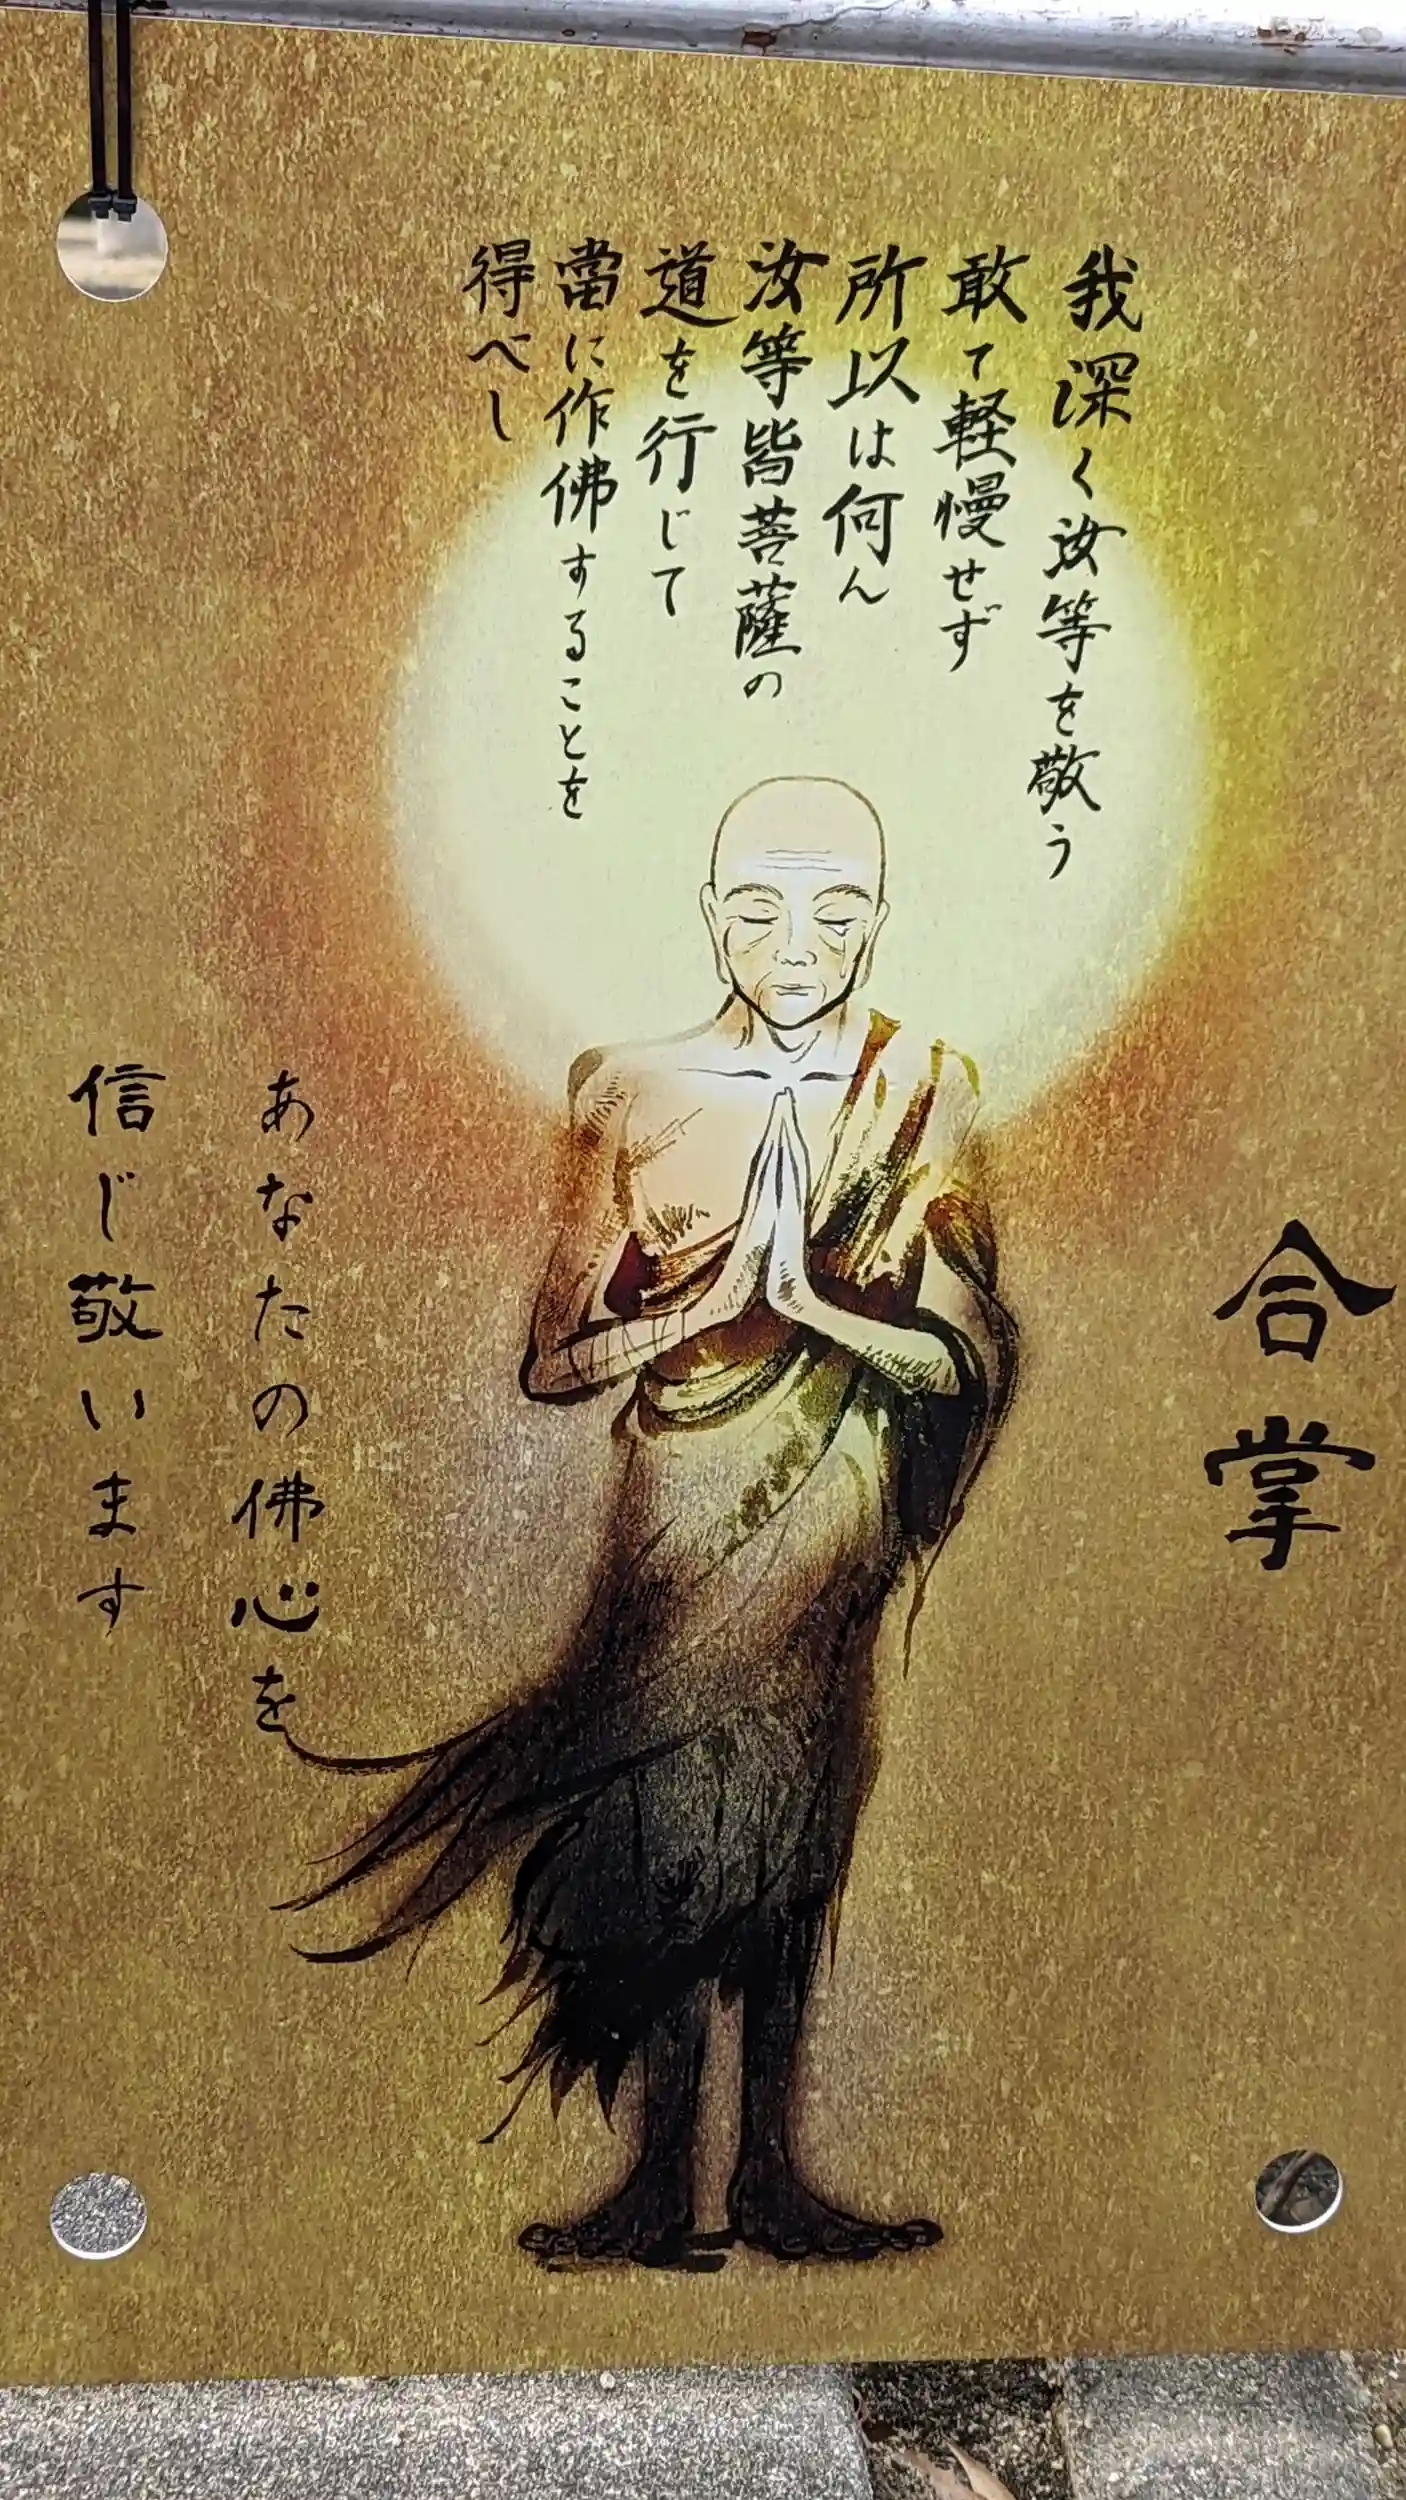 我深く汝等を敬う
敢て軽慢せず
所以は何ん
汝等皆菩薩の
道を行じて
當に作佛することを
得べし
合掌
あなたの佛心を
信じ敬います